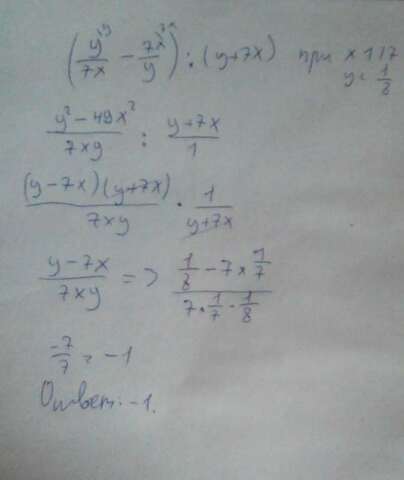 (y^y/7x − 7x^7x/y) : (y+7x) при x 1/7
y = 1/8
y² − 49x²/7xy : y+7x/1
(y−7x)(y+7x)/7xy · 1/y+7x
y−7x/7xy => 1/8 − 7 × 1/7 / 7 · 1/7 · 1/8
−7/7 = −1
Ответ: −1.